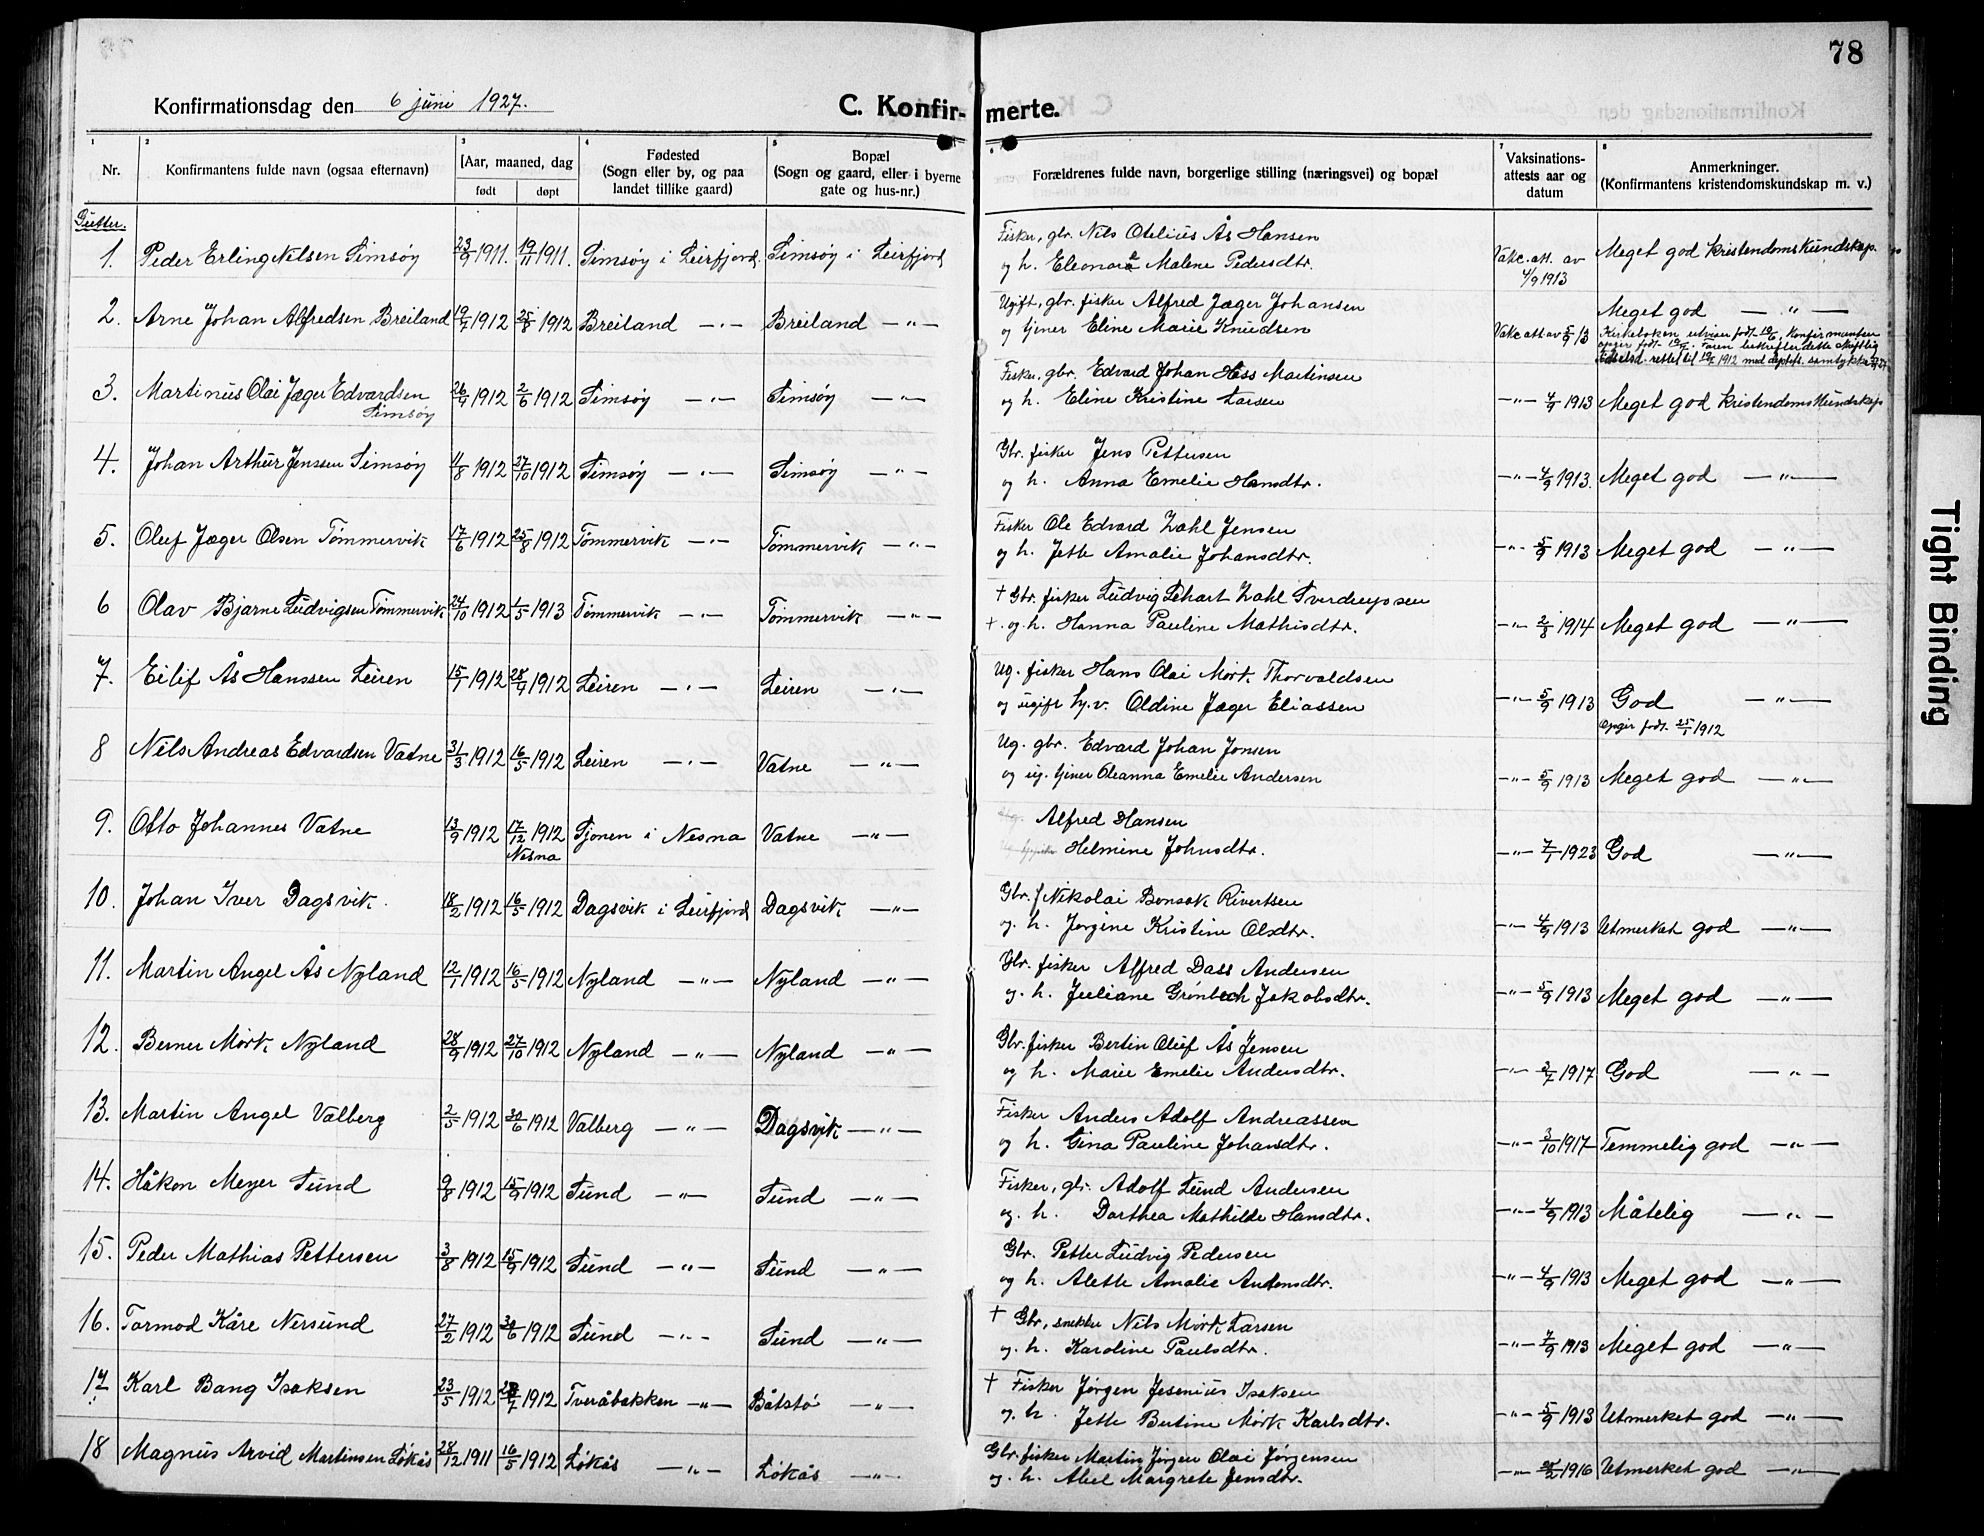 78
Konfirmationsdag den 6 juni 1927.
C. Konfir- merte.
Nr.
Konfirmantens fulde navn (ogsaa efternavn)
Aar, maaned, dag
født døpt
Fødested
(Sogn eller by, og paa
landet tillike gaard)
Bopæl
(Sogn og gaard, eller i byerne
gate og hus-nr.)
Forældrenes fulde navn, borgerlige stilling (næringsvei) og bopæl
Vaksinations-
attests aar og
datum
Anmerkninger.
(Konfirmantens kristendomskundskap m. v.)
Gutter.
1. Peder Erling Nilsen Simsøy 23/9 1911. 19/11 1911. Simsøy i Leirfjord. Simsøy i Leirfjord
Fisker, gbr. Nils Otelius Ås Hansen
og h. Eleonora Malene Pedersdtr.
Vakc. att. av 4/9 1913
Meget god kristendomskundskap.
2. Arne Johan Alfredsen Breiland 1912 25/8 1912 Breiland — " — Breiland — " —
Ugift, gbr. fisker Alfred Jæger Johansen
og tjener Eline Marie Knudsen
Vakc att av 5/9 13
Meget god — " —
3. Martinus Olai Jæger Edvardsen Simsøy 26/4 1912 2/6 1912 Simsøy — " — Simsøy — " —
Fisker, gbr. Edvard Johan Hess Martinsen
og h. Eline Kristine Larsen
— " — 4/9 1913 Meget god kristendomskundskap
4. Johan Arthur Jenssen Simsøy 11/8 1912 27/10 1912 Simsøy — " — Simsøy — " —
Gbr. fisker Jens Pettersen
og h. Anna Emelie Hansdtr.
— " — 4/9 1913. Meget god — " —
5. Oluf Jæger Olsen Tømmervik 17/6 1912 25/8 1912 Tømmervik — " — Tømmervik — " —
Fisker Ole Edvard Zahl Jensen
og h. Jette Amalie Johansdtr.
— " — 5/9 1913 Meget god — " —
6 Olav Bjarne Ludvigsen Tømmervik 24/10 1912 1/5 1913 Tømmervik — " — Tømmervik — " —
† Gbr. fisker Ludvig Zahl Sverdrupsen
+. og h. Hanna Pauline Mathisdtr.
— " — 2/8 1914 Meget god — " —
7. Eilif Ås Hanssen Leiren 15/1 1912 28/4 1912 Leiren — " — Leiren — " —
Ug. fisker Hans Olai Mørk Thorvaldsen
og ugift Oldine Jæger Eliassen
— " — 5/9 1913 God — " —
Opgir født 25/1 1912
8 Nils Andreas Edvardsen Vatne 31/3 1912 16/5 1912 Leiren — " — Vatne — " —
Ug. gbr. Edvard Johan Jonsen
og ug. tjener Oleanna Emelie Andersen
— " — 5/9 1913 Meget god — " —
9. Otto Johannes Vatne 13/9 1912 17/12 1912 Nesna Tjonen i Nesna Vatne — " —
Alfred Hansen
Helmine Johnsdtr.
— " — 7/1 1923 God — " —
10. Johan Iver Dagsvik. 18/2 1912 16/5 1912 Dagsvik i Leirfjord Dagsvik — " —
Gbr. f Nikolai Bonsak Rivertsen
og. h. Jørgine Kristine Olsdtr.
— " — 4/9 1913 Utmerket god — " —
11. Martin Angel Ås Nyland 12/1 1912 16/5 1912 Nyland — " — Nyland — " —
Gbr. fisker Alfred Dass Andersen
og. h. Juliane Grønbech Jakobsdtr.
— " — 5/9 1913 Meget god — " —
12. Berner Mørk Nyland 28/9 1912 27/10 1912 Nyland — " — Nyland — " —
Gbr. fisker Bertin Oluf Ås Jensen
og h. Marie Emelie Andersdtr.
— " — 2/7 1917 God — " —
13. Martin Angel Valberg 2/5 1912 30/6 1912 Valberg — " — Dagsvik — " —
Fisker Anders Adolf Andreassen
og h. Gina Pauline Johansdtr.
— " — 3/10 1917 Temmelig god — " —
14. Håkon Meyer Sund 9/8 1912 15/9 1912 Sund — " — Sund — " —
Fisker, gbr. Adolf Lund Andersen
og. h. Dorthea Mathilde Hansdtr.
— " — 4/9 1913 Måtelig — " —
15. Peder Mathias Pettersen 3/8 1912 15/9 1912 Sund — " — Sund — " —
Gbr. Petter Ludvig Pedersen
og h. Alette Amalie Antonsdtr.
— " — 4/9 1913 Meget god — " —
16. Tormod Kåre Nersund 27/2 1912 30/6 1912 Sund — " — Sund — " —
† Gbr, snekker Nils Mørk Larsen
og. h. Karoline Paulsdtr.
— " — 7/9 1913 Meget god — " —
17. Karl Bang Isaksen 23/5 1912 1912 Tveråbakken — " — Båtstø — " —
† Fisker Jørgen Jesenius Isaksen
og. h. Jette Bertine Mørk Karlsdtr.
— " — 5/9 1913 Utmerket god — " —
18 Magnus Arvid Martinsen Løkås 28/12 1911 16/5 1912 Løkås — " — Løkås — " —
Gbr. fisker Martin Jørgen Olai Jørgensen
og. h. Abel Margrete Jensdtr.
— " — 1916 Utmerket god — " —
Tight Binding